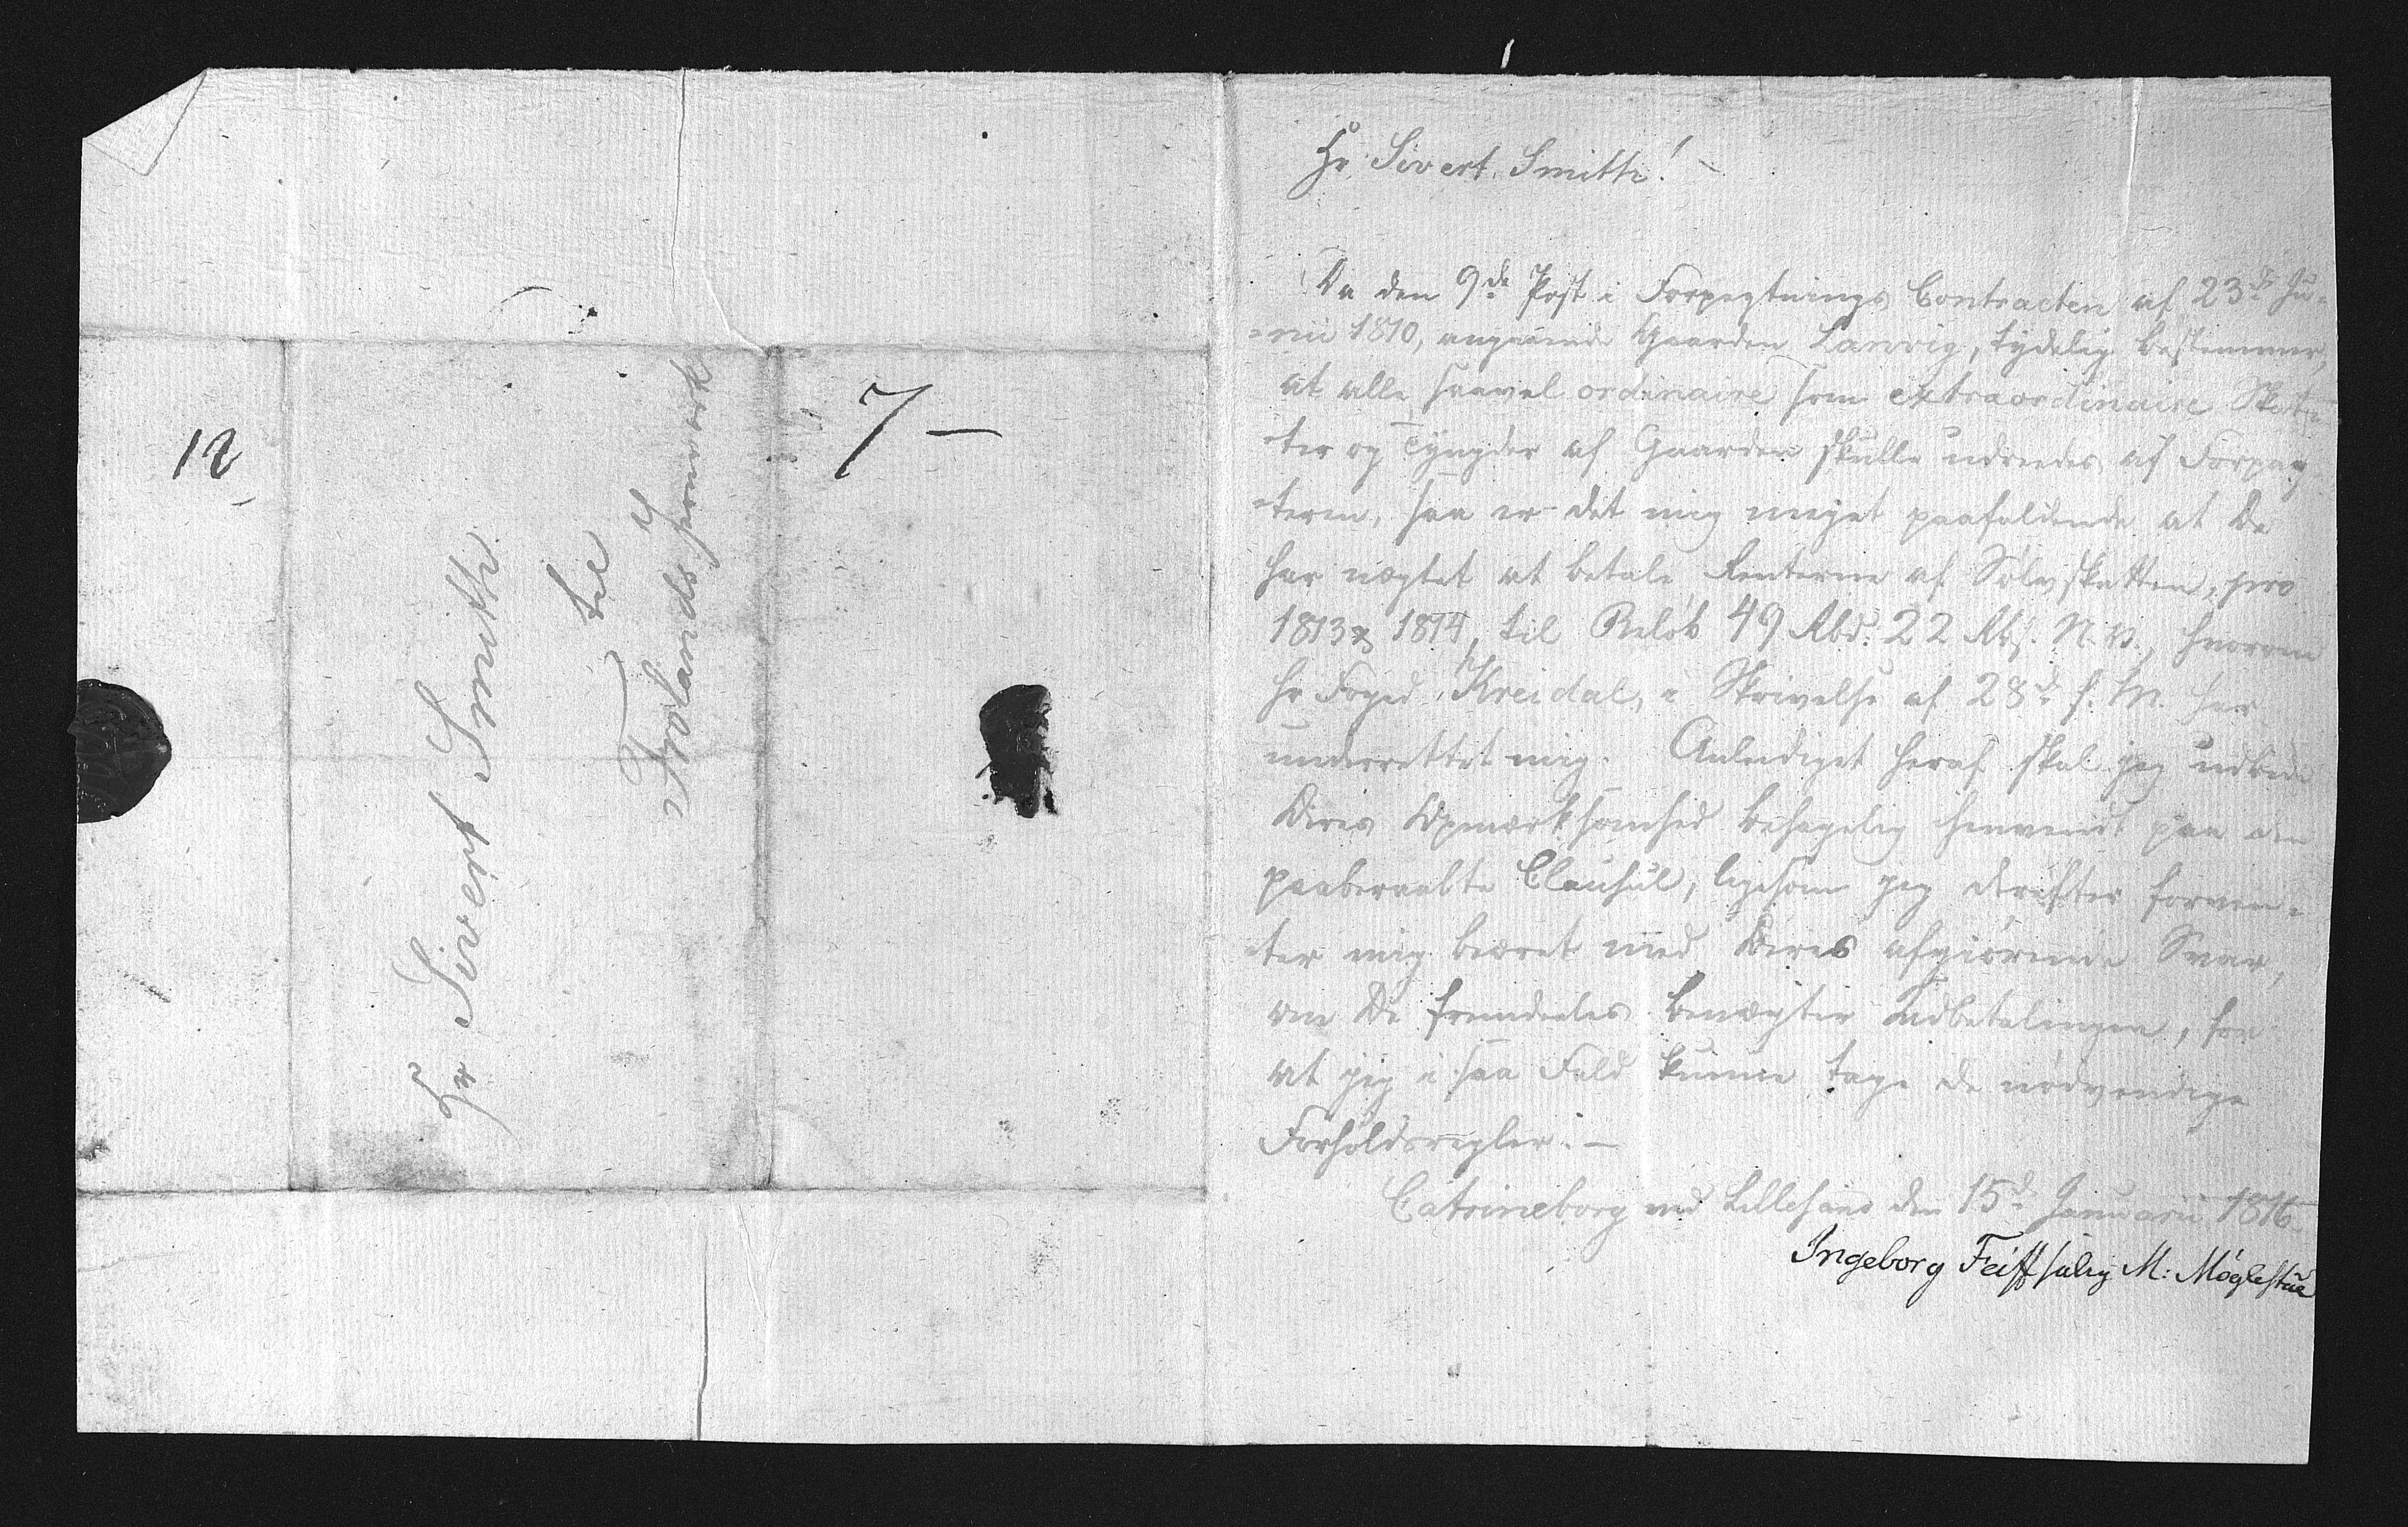 12
7 —
Hr Sivert Smith
til
Frolands Jernværk
Hr. Sivert Smith! —
Da den 9de Post i Forpagtnings Contracten af 23de Ju-
-nii 1810, angaaende Gaarden Landvig, tydelig bestemmer,
at alle, saavel ordinaire som extraordinaire Skat-
-ter og Tyngder af Gaarden skulle udredes af Forpag-
-teren, saa er det mig meget paafaldende at De
har nægtet at betale Renterne af Sølvskatten, pro
1813 & 1814, til Beløb 49 Rbd. 22 Rbs. N. V., hvorom
Hr Foged Kreidal, i Skrivelse af 28d f. M. har
underrettet mig. Anlediget heraf skal jeg udbede
Deres Opmærksomhed behagelig henvendt paa den
paaberaabte Clausul, ligesom jeg derefter forven-
-ter mig beæret med Deres afgiørende Svar,
om De fremdeeles benægter Udbetalingen, for
at jeg i saa Fald kunne tage de nødvendige
Forholdsregler. —
Catrineborg ved Lillesand den 15d Januarii 1816.
Ingeborg Feiff salig M: Møglestue